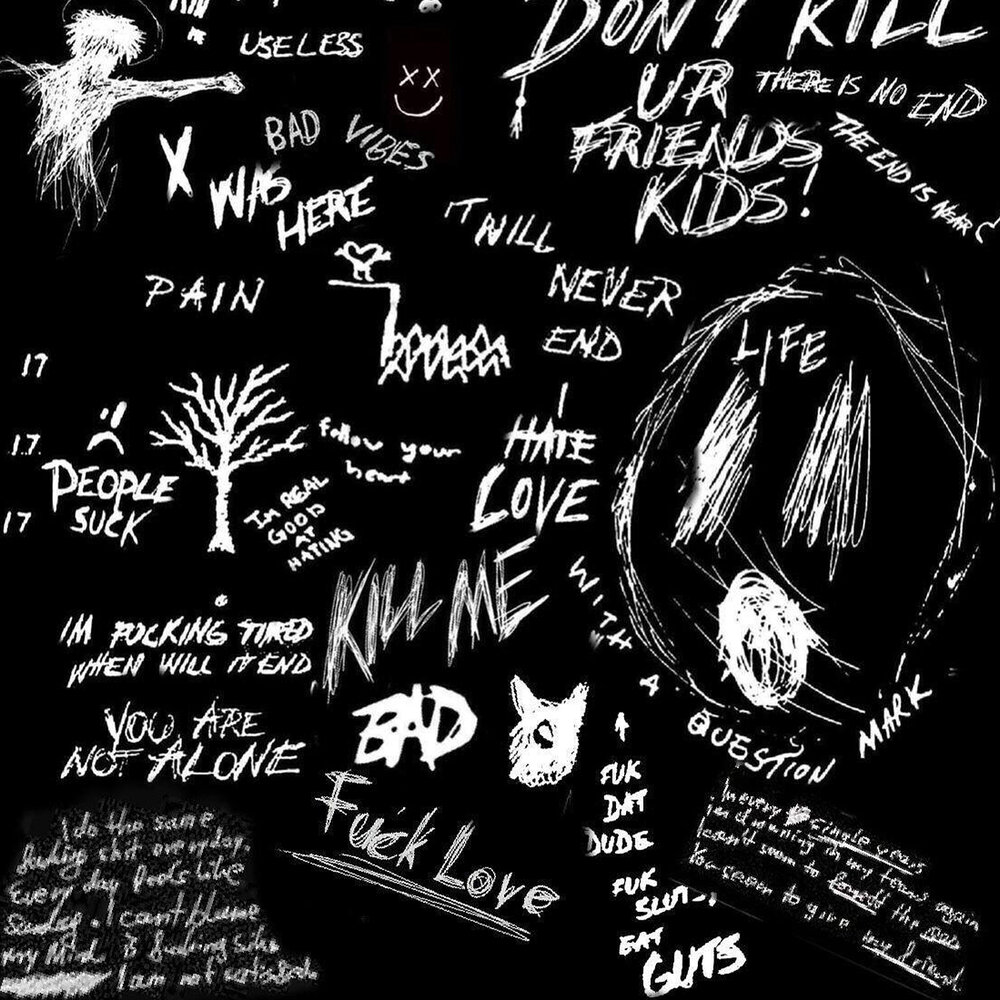 USELESS
DON'T KILL
UR
FRIENDS
KIDS!
THERE IS NO END
THE END IS NEAR
BAD VIBES
X
WAS
HERE
IT WILL
NEVER
END
PAIN
LIFE
17
17.
17
PEOPLE
SUCK
follow your
heart
IM REAL
GOOD
AT
HATING
I
HATE
LOVE
KILL ME
WITH
A
QUESTION
MARK
IM FUCKING TIRED
WHEN WILL IT END
YOU ARE
NOT ALONE
BAD
Fuck Love
FUK
DAT
DUDE
FUK
SLUT
EAT
GUTS
I do the same
fucking shit everyday.
Every day feels like
Sunday. I cant blame
my Mind is fucking
I am not
In every single
im drowning in my tears again
I can't seem to the
to seem to give my friend.